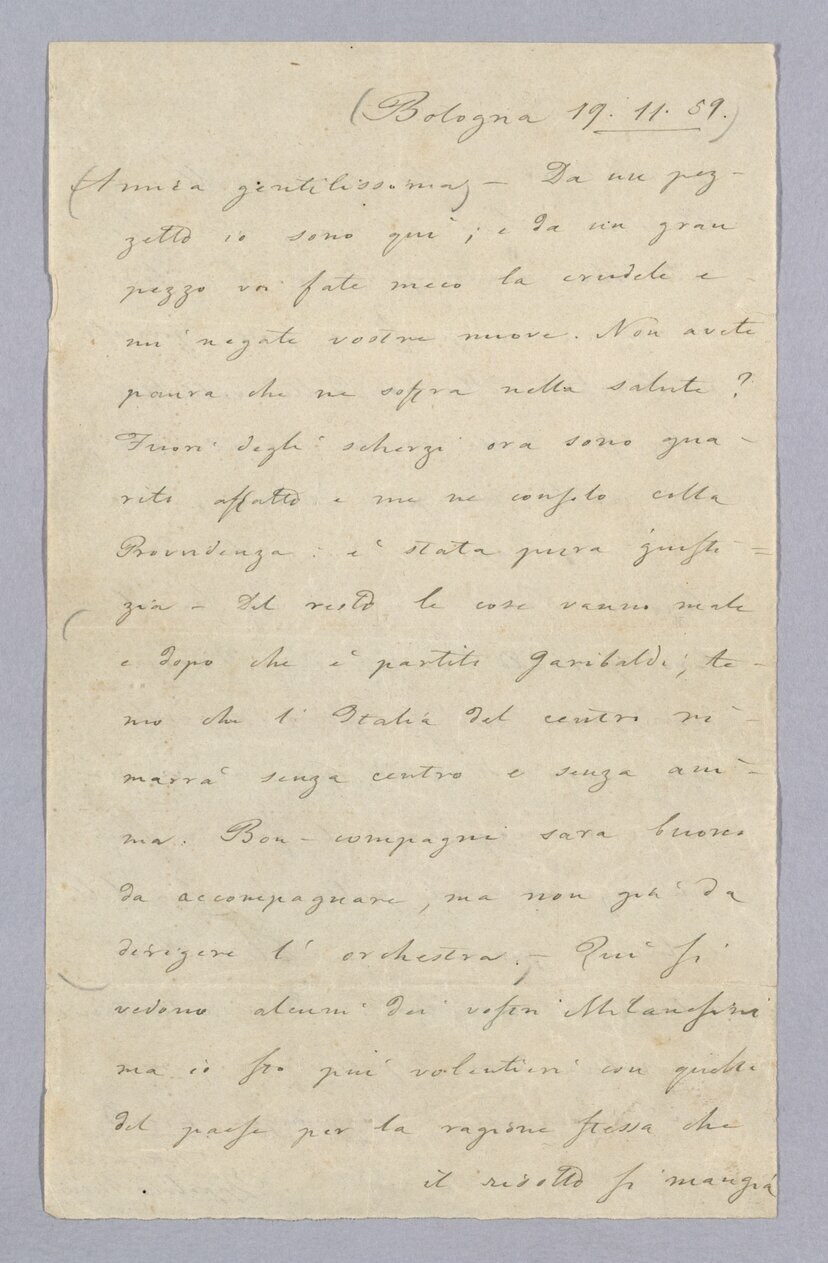 (Bologna 19. 11. 59.)
(Amica gentilissima) – Da un pez-
zetto io sono qui; e da un gran
pezzo voi fate meco la crudele e
mi negate vostre nuove. Non avete
paura che ne soffra nella salute?
Fuori degli scherzi ora sono gua-
rito affatto e me ne consolo colla
Provvidenza: è stata pura giusti=
zia – Del resto le cose vanno male
e dopo che è partito Garibaldi, te-
mo che l'Italia del centro ri-
marrà senza centro e senza ani-
ma. Bon-compagni sarà buono
da accompagnare, ma non già da
dirigere l'orchestra. – Qui si
vedono alcuni dei vostri Milanesini
ma io sto più volentieri con quelli
del paese per la ragione stessa che
il risotto si mangia